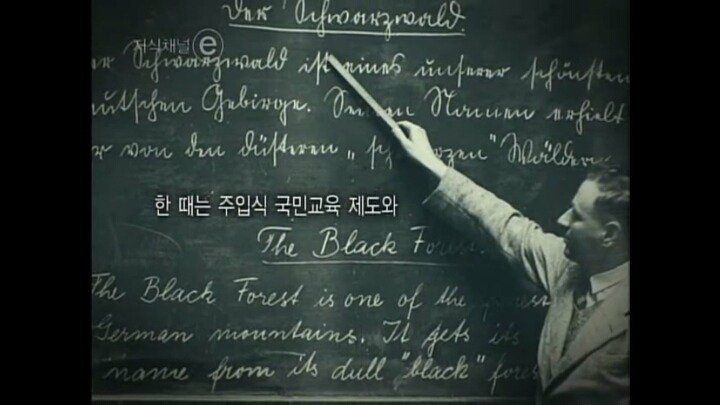 Der Schwarzwald.
지식채널 e
er Schwarzwald ist eines unserer schönsten
eutschen Gebirge. Seinen Namen erhielt
er von den düsteren „sch rzen" Wäldern
한 때는 주입식 국민교육 제도와
The Black Forest.
The Black Forest is one of the
German mountains. It gets its
name from its dull "black" fores